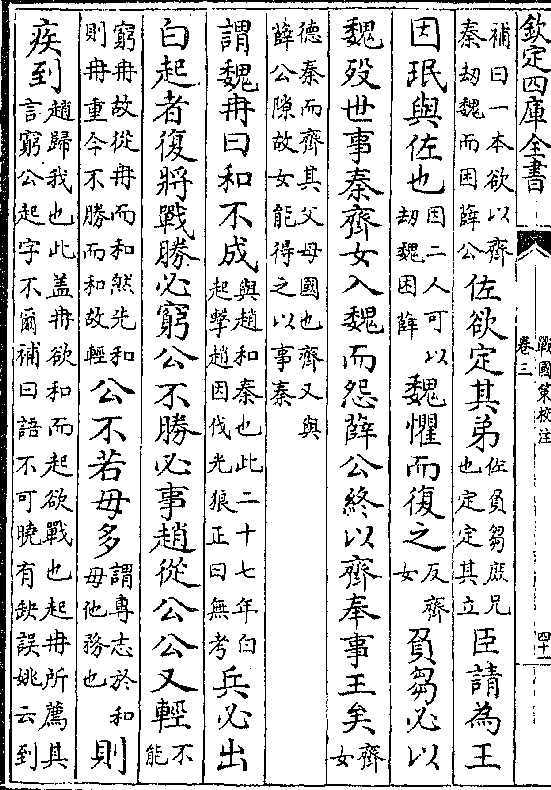 欽定四庫全書
戰國策校注
卷三
四十一
補曰一本欲以齊秦劫魏而困薛公佐欲定其弟佐負芻庶兄也定定其立臣請為王
因珉與佐也因二人可以劫魏困薛魏懼而復之反齊女負芻必以
魏歿世事秦齊女入魏而怨薛公終以齊奉事王矣齊女
德秦而齊其父母國也齊又與薛公隙故女能得之以事秦
謂魏冉曰和不成與趙和秦也此二十七年白起擊趙因伐光狼正曰無考兵必出
白起者復將戰勝必窮公不勝必事趙從公公又輕不能
窮冉故從冉而和然先和則冉重今不勝而和故輕公不若毋多謂專志於和毋他務也則
疾到趙歸我也此盖冉欲和而起欲戰也起冉所薦其言窮公起字不爾補曰語不可曉有缺誤姚云到